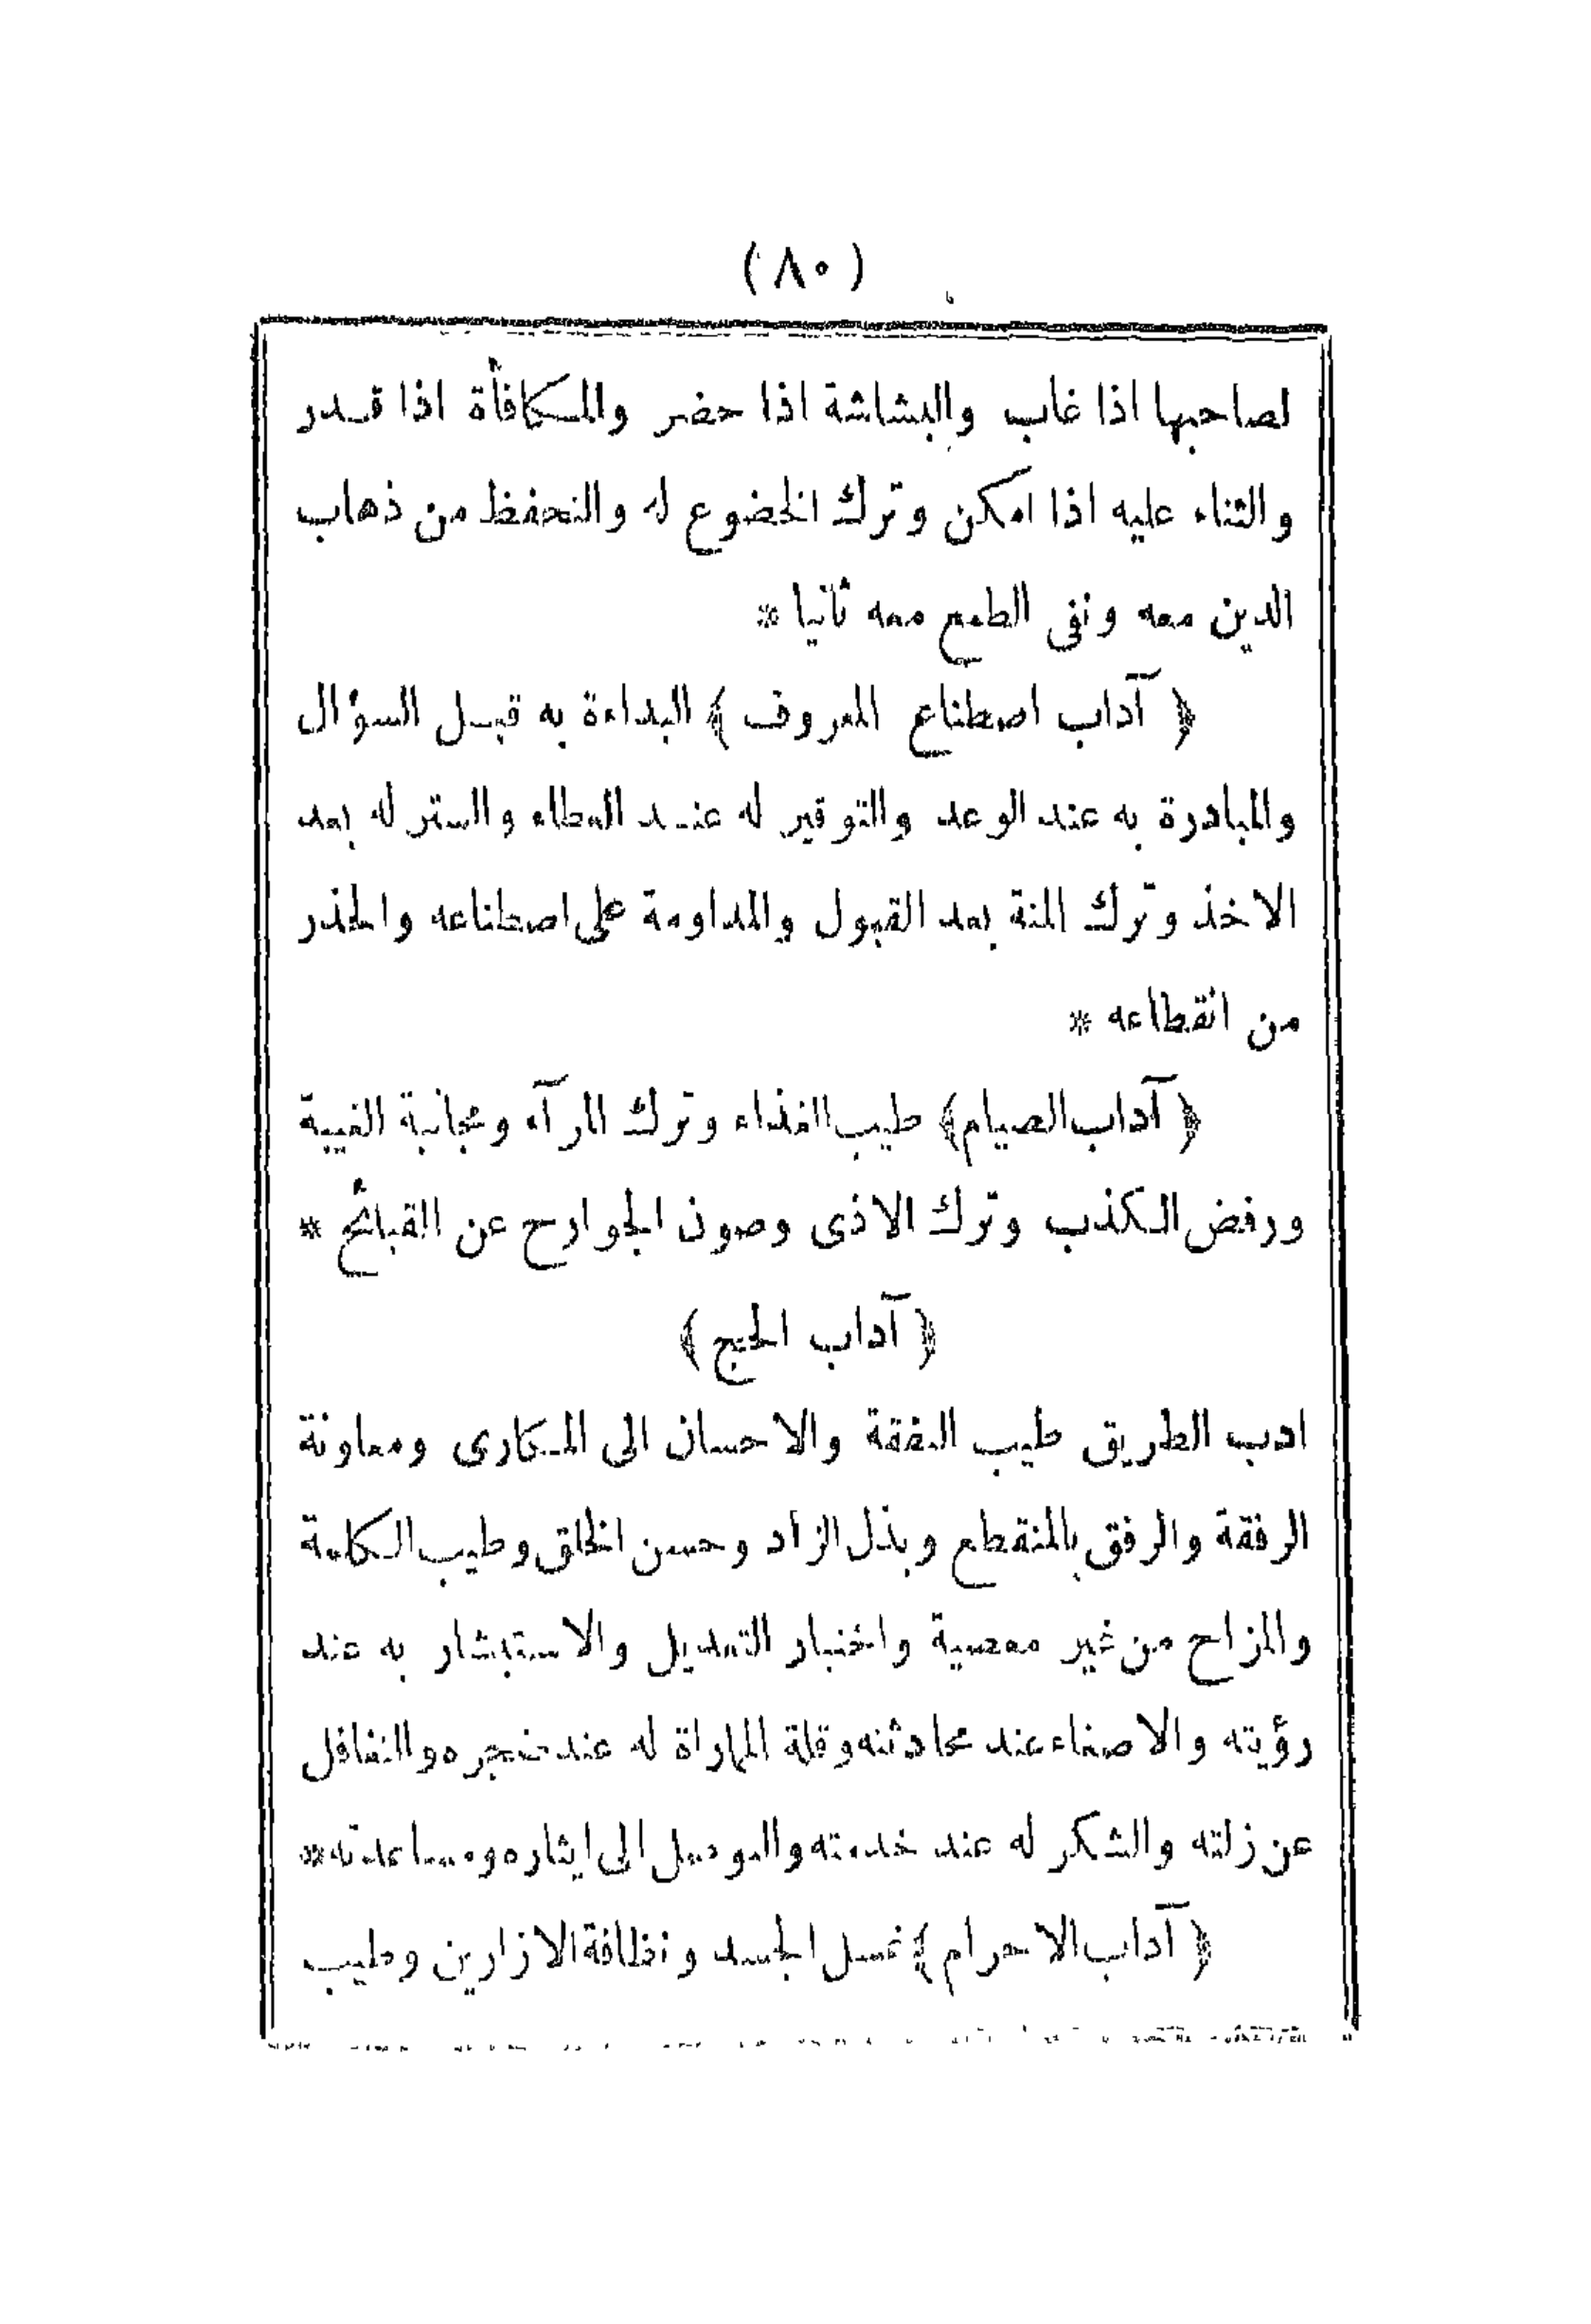 ( ٨٠ )
لصاحبها اذا غاب والبشاشة اذا حضر والمكافأة اذا قدر
والثناء عليه اذا امكن وترك الخضوع له والتحفظ من ذهاب
الدين معه ونفى الطمع معه ثانيا *
﴿ آداب اصطناع المعروف ﴾ البداءة به قبل السؤال
والمبادرة به عند الوعد والتوقير له عند العطاء والستر له بعد
الاخذ وترك المنة بعد القبول والمداومة على اصطناعه والحذر
من انقطاعه *
﴿ آداب الصيام ﴾ طيب الغذاء وترك المرآء ومجانبة الغيبة
ورفض الكذب وترك الاذى وصون الجوارح عن القبائح *
﴿ آداب الحج ﴾
ادب الطريق طيب النفقة والاحسان الى المكارى ومعاونة
الرفقة والرفق بالمنقطع وبذل الزاد وحسن الخلق وطيب الكلمة
والمزاح من غير معصية واختيار التعديل والاستبشار به عند
رؤيته والاصغاء عند محادثته وقلة المماراة له عند ضجره والتغافل
عن زلته والشكر له عند خدمته والتوصل الى ايثاره ومساعدته *
﴿ آداب الاحرام ﴾ غسل الجسد ونظافة الازارين وطيب